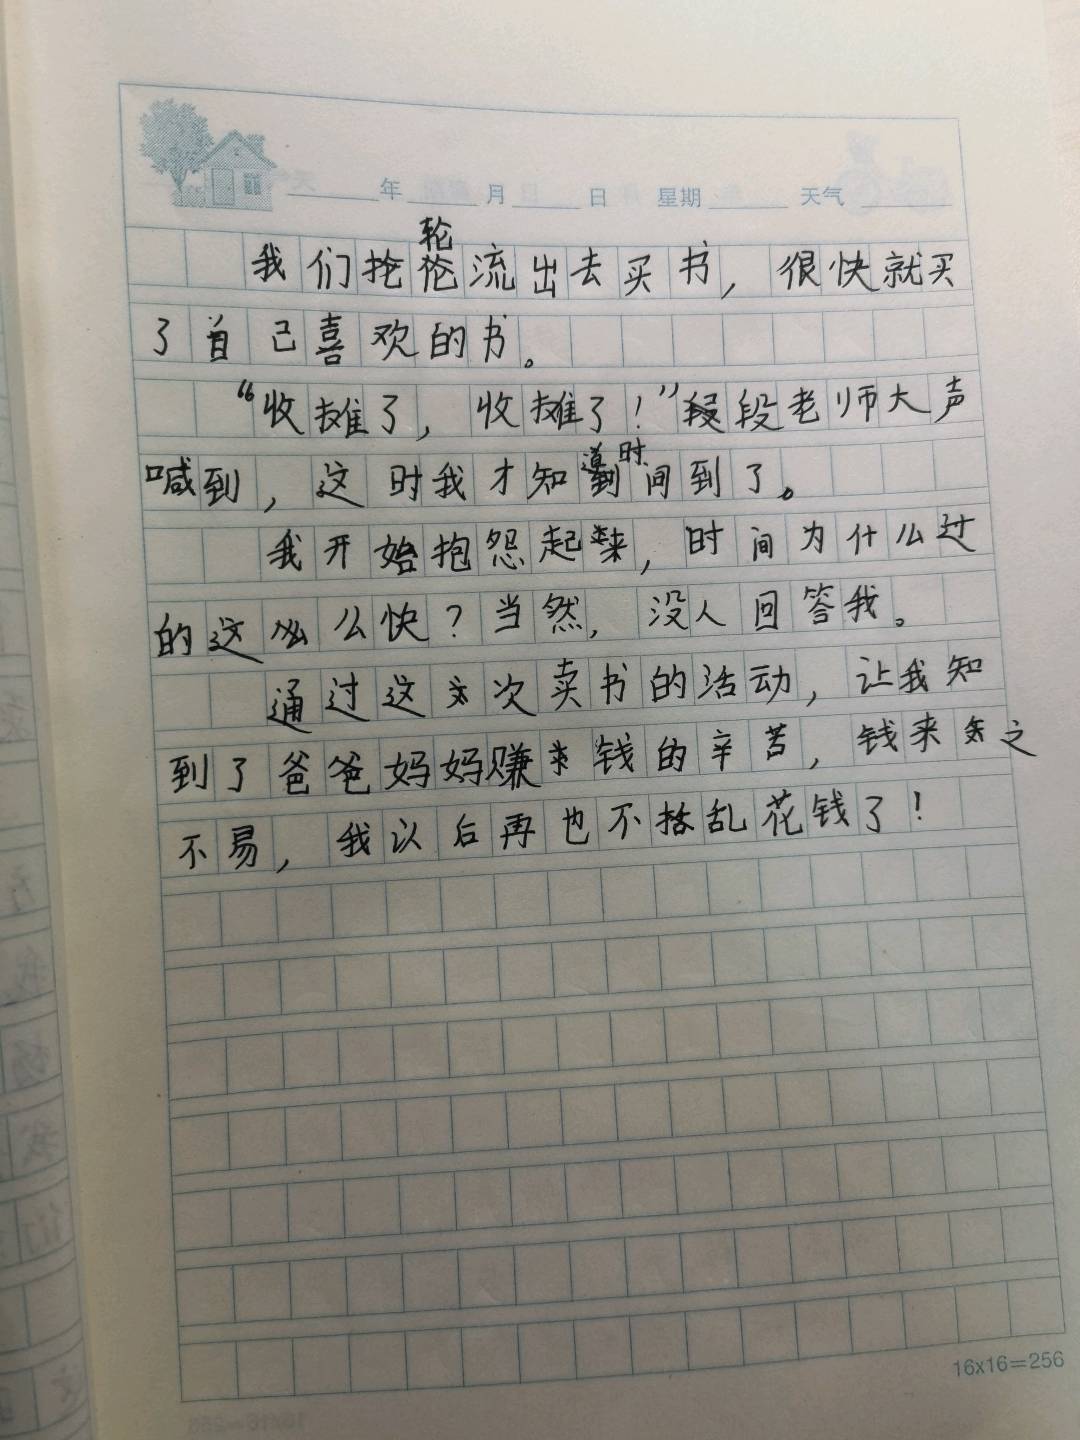 年 月 日 星期 天气
我们轮流出去买书，很快就买
了自己喜欢的书。
“收摊了，收摊了！”段老师大声
喊到，这时我才知道时间到了。
我开始抱怨起来，时间为什么过
的这么快？当然，没人回答我。
通过这次卖书的活动，让我知
到了爸爸妈妈赚钱的辛苦，钱来之
不易，我以后再也不乱花钱了！
16x16=256